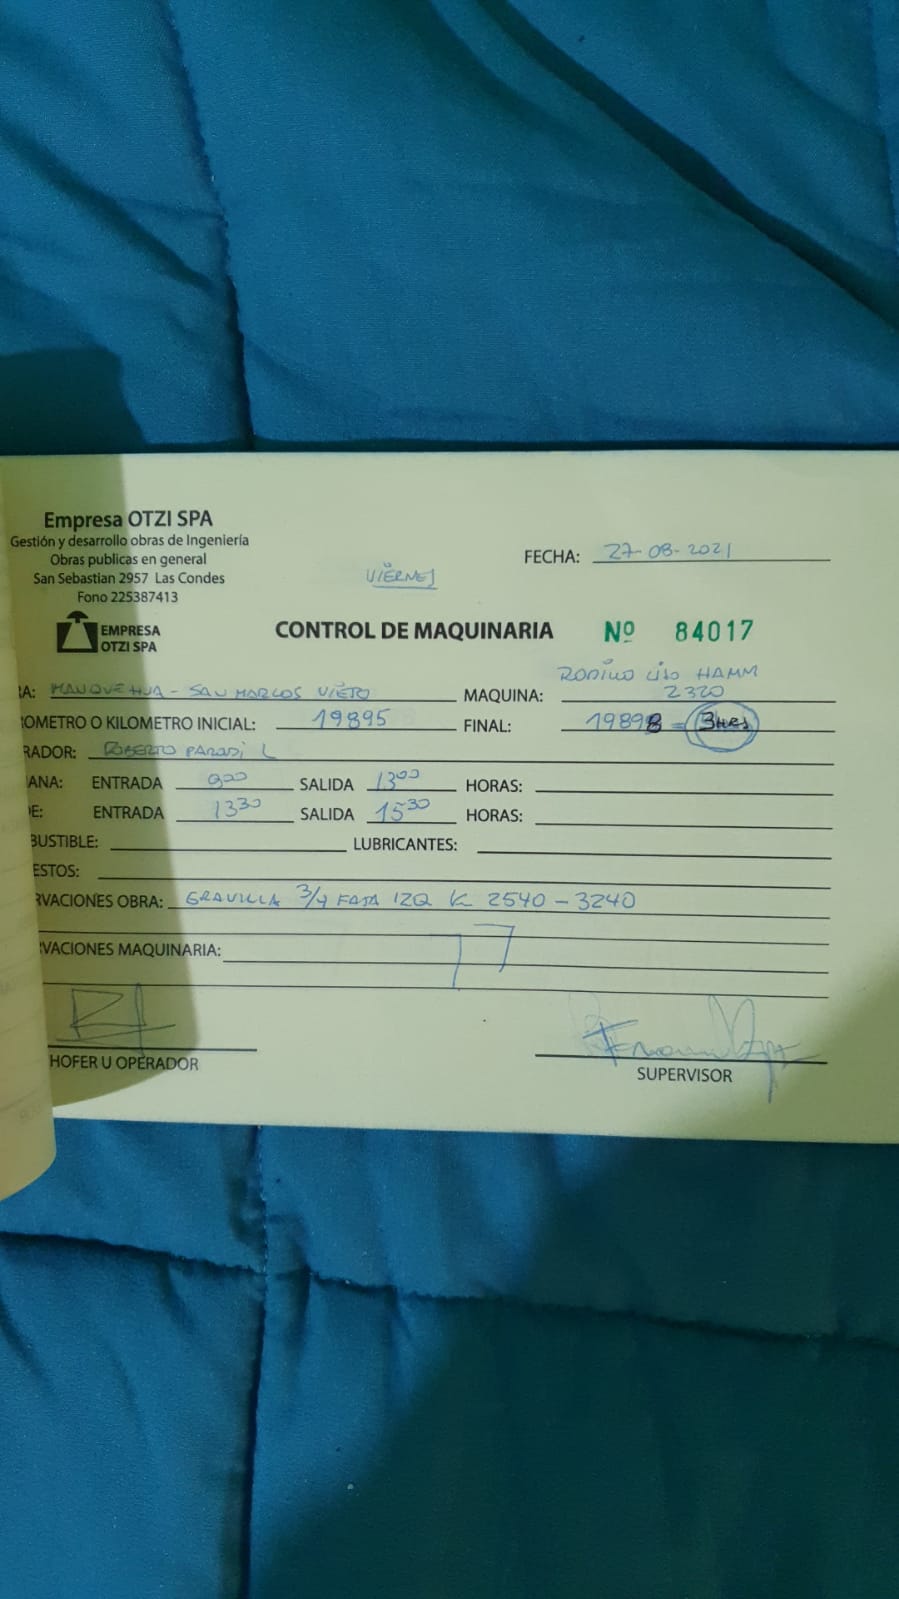 Empresa OTZI SPA
Gestión y desarrollo obras de Ingeniería
Obras publicas en general
San Sebastian 2957 Las Condes
Fono 225387413
EMPRESA
OTZI SPA
VIERNES
FECHA: 27-08-2021
CONTROL DE MAQUINARIA Nº 84017
RA: MANQUEHUA - SAN MARCOS VIEJO MAQUINA: RODILLO LISO HAMM 2320
OMETRO O KILOMETRO INICIAL: 19895 FINAL: 19898 = 3HRS
RADOR: ROBERTO PARODI L
ANA: ENTRADA 900 SALIDA 1300 HORAS:
DE: ENTRADA 1330 SALIDA 1530 HORAS:
BUSTIBLE: LUBRICANTES:
ESTOS:
RVACIONES OBRA: GRAVILLA 3/4 FAJA IZQ K 2540 - 3240
RVACIONES MAQUINARIA:
HOFER U OPERADOR
SUPERVISOR